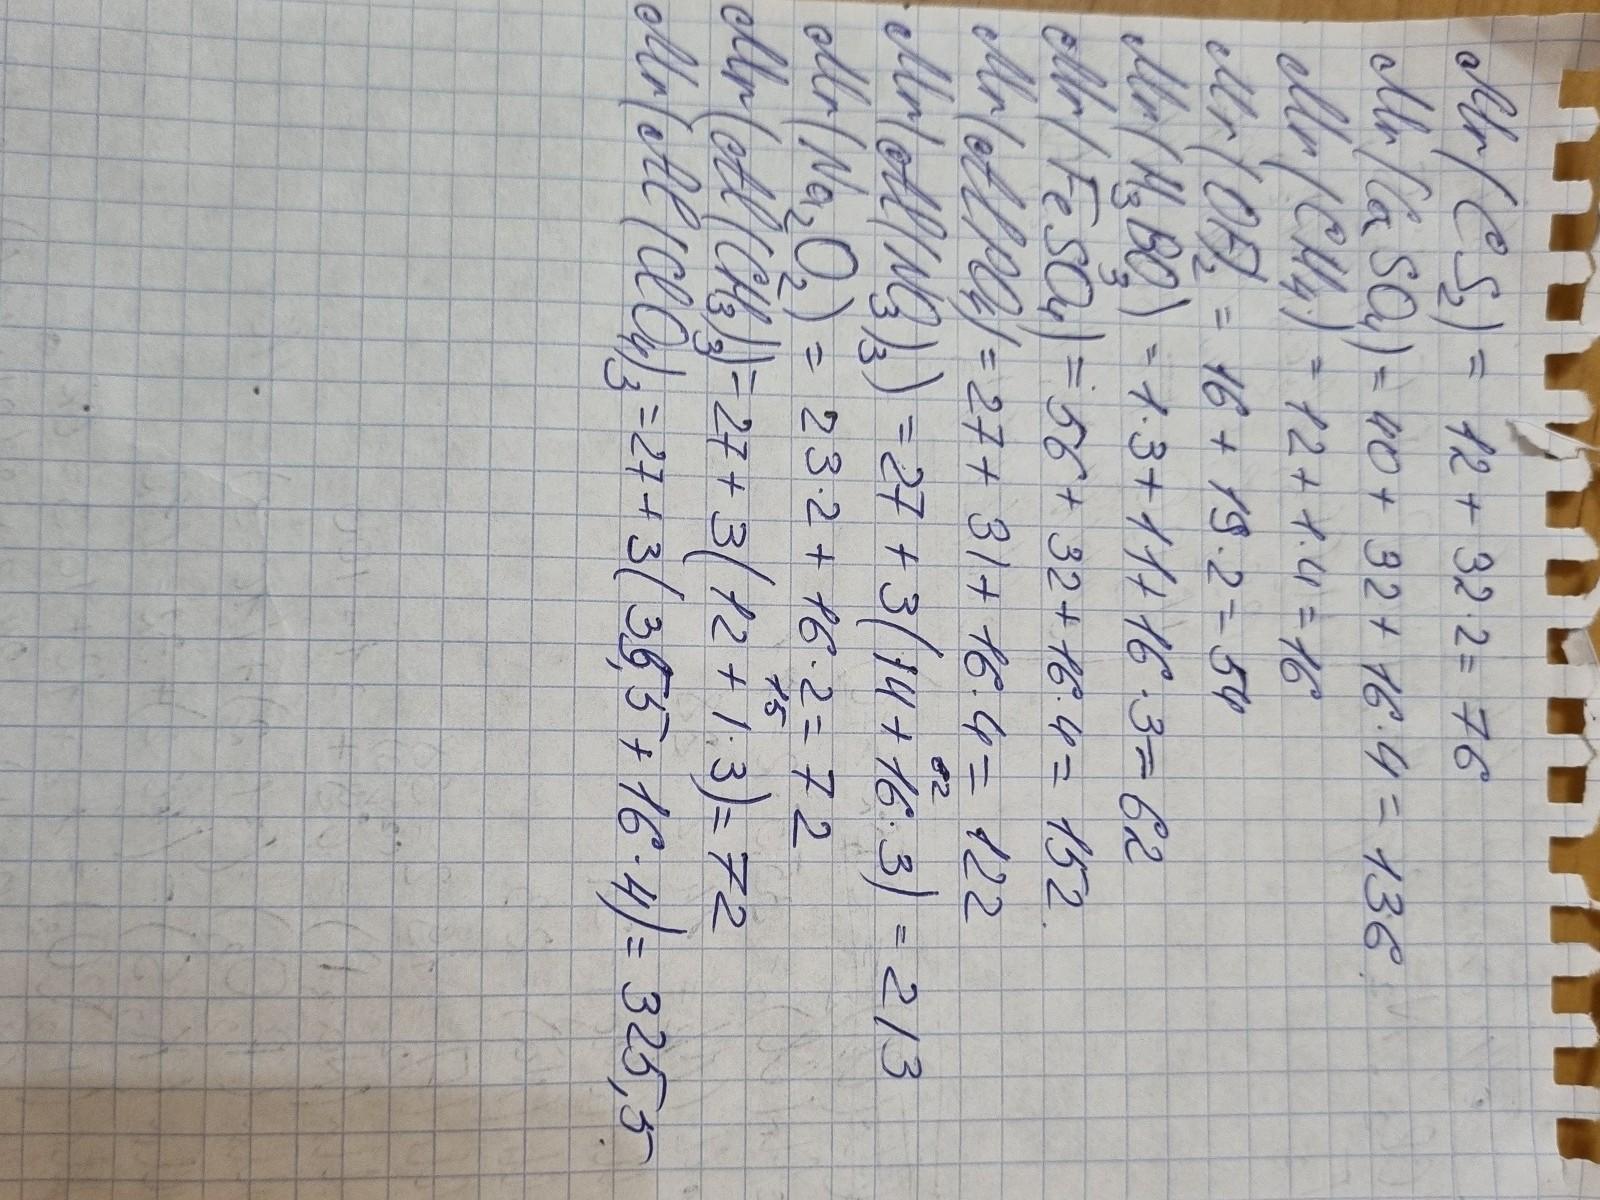 Mr(CS₂) = 12 + 32·2 = 76
Mr(CaSO₄) = 40 + 32 + 16·4 = 136
Mr(CH₄) = 12 + 1·4 = 16
Mr(OF₂ = 16 + 19·2 = 54
Mr(H₃BO₃) = 1·3 + 11 + 16·3 = 62
Mr(FeSO₄) = 56 + 32 + 16·4 = 152
Mr(AlPO₄) = 27 + 31 + 16·4 = 122
62
Mr(Al(NO₃)₃) = 27 + 3(14 + 16·3) = 213
Mr(Na₂O₂) = 23·2 + 16·2 = 72
15
Mr(Al(CH₃)₃) = 27 + 3(12 + 1·3) = 72
Mr(Al(ClO₄)₃ = 27 + 3(35,5 + 16·4) = 325,5